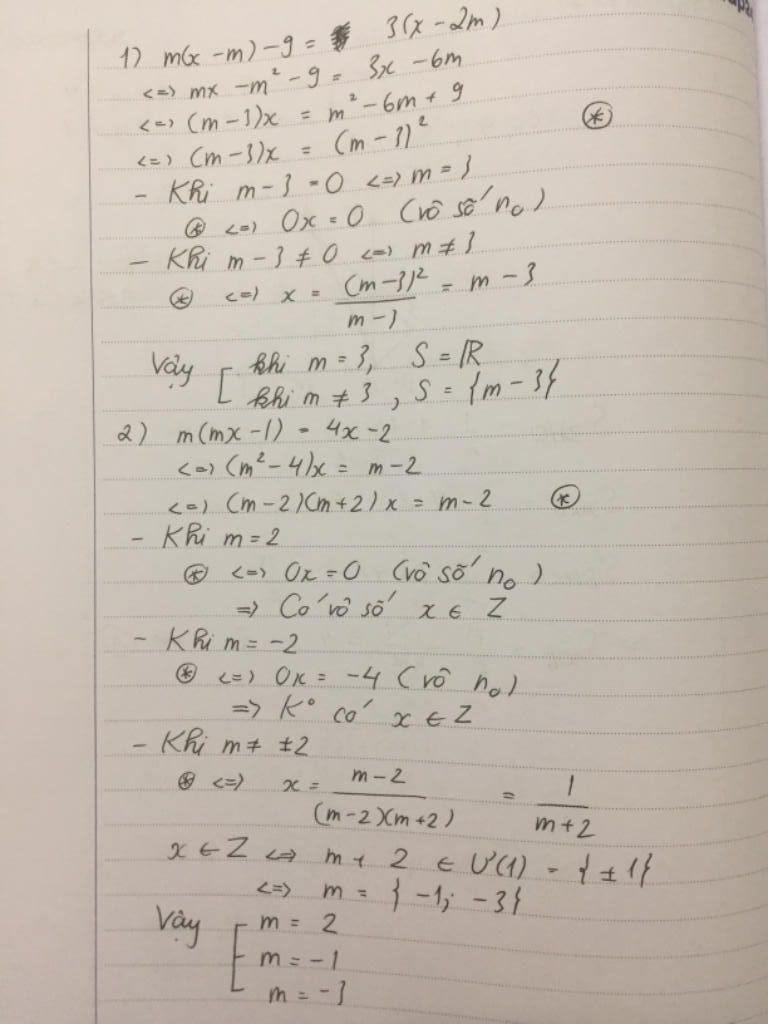 1) m(x - m) - 9 = 3(x - 2m)
<=> mx - m² - 9 = 3x - 6m
<=> (m - 3)x = m² - 6m + 9
<=> (m - 3)x = (m - 3)² ⊛
- Khi m - 3 = 0 <=> m = 3
⊛ <=> 0x = 0 (vô số n₀)
- Khi m - 3 ≠ 0 <=> m ≠ 3
⊛ <=> x = (m-3)²/(m-3) = m - 3
Vậy [ khi m = 3, S = ℝ
khi m ≠ 3, S = {m - 3}
2) m(mx - 1) = 4x - 2
<=> (m² - 4)x = m - 2
<=> (m - 2)(m + 2)x = m - 2 ⊛
- Khi m = 2
⊛ <=> 0x = 0 (vô số n₀)
=> Có vô số x ∈ Z
- Khi m = -2
⊛ <=> 0x = -4 (vô n₀)
=> K° có x ∈ Z
- Khi m ≠ ±2
⊛ <=> x = (m-2)/((m-2)(m+2)) = 1/(m+2)
x ∈ Z <=> m + 2 ∈ Ư(1) = {±1}
<=> m = {-1; -3}
Vậy [ m = 2
m = -1
m = -3